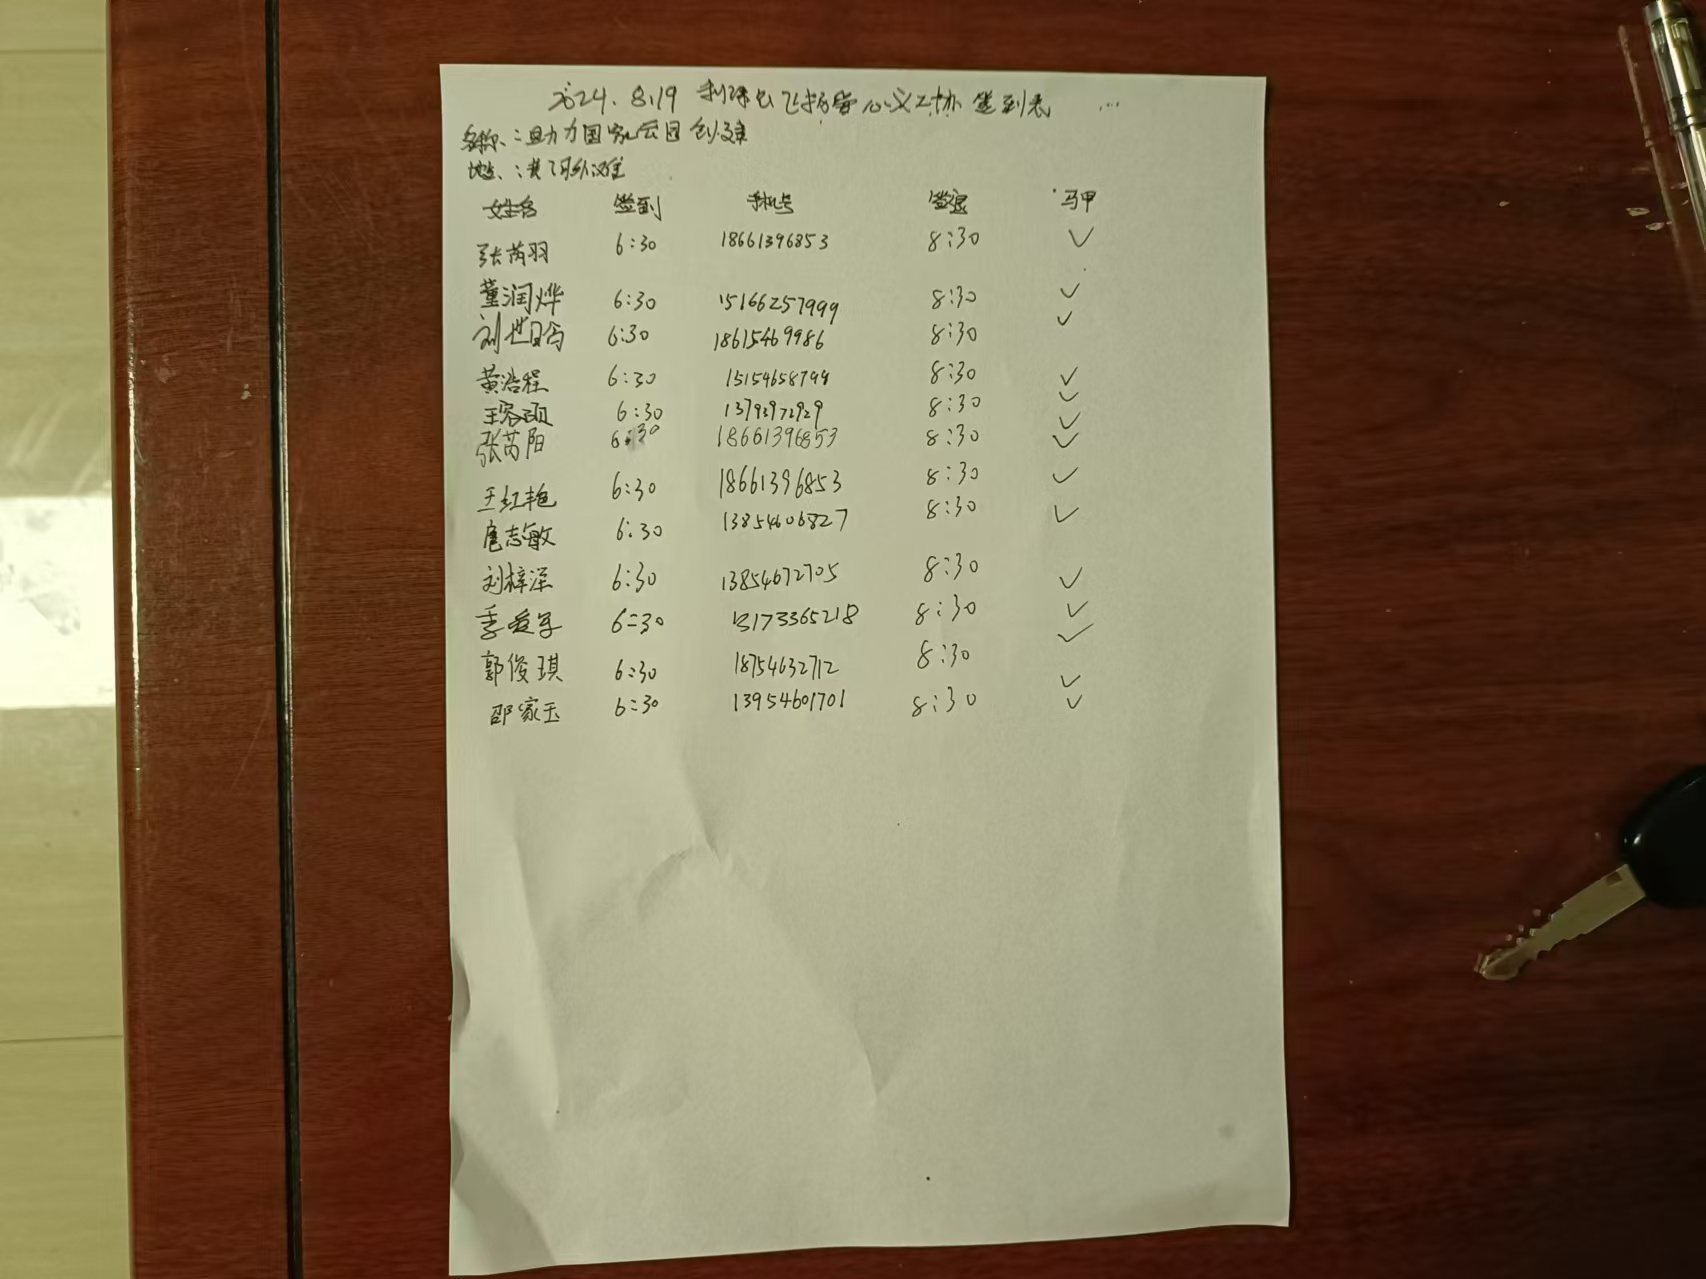 2024.8.19 利津县飞扬爱心义工协签到表
名称:助力国家公园创建
地点:黄河外滩
姓名 签到 手机号 签退 马甲
张芮羽 6:30 18661396853 8:30 ✓
董润烨 6:30 15166257999 8:30 ✓
刘世 6:30 18615469986 8:30 ✓
黄浩程 6:30 15154658799 8:30 ✓
王容硕 6:30 1379972929 8:30 ✓
张芮阳 6:30 18661396853 8:30 ✓
王红艳 6:30 18661396853 8:30 ✓
扈志敏 6:30 13854606827 8:30 ✓
刘梓泽 6:30 13854672705 8:30 ✓
季爱军 6:30 13173365218 8:30 ✓
郭俊琪 6:30 18754632712 8:30 ✓
邵家玉 6:30 13954601701 8:30 ✓